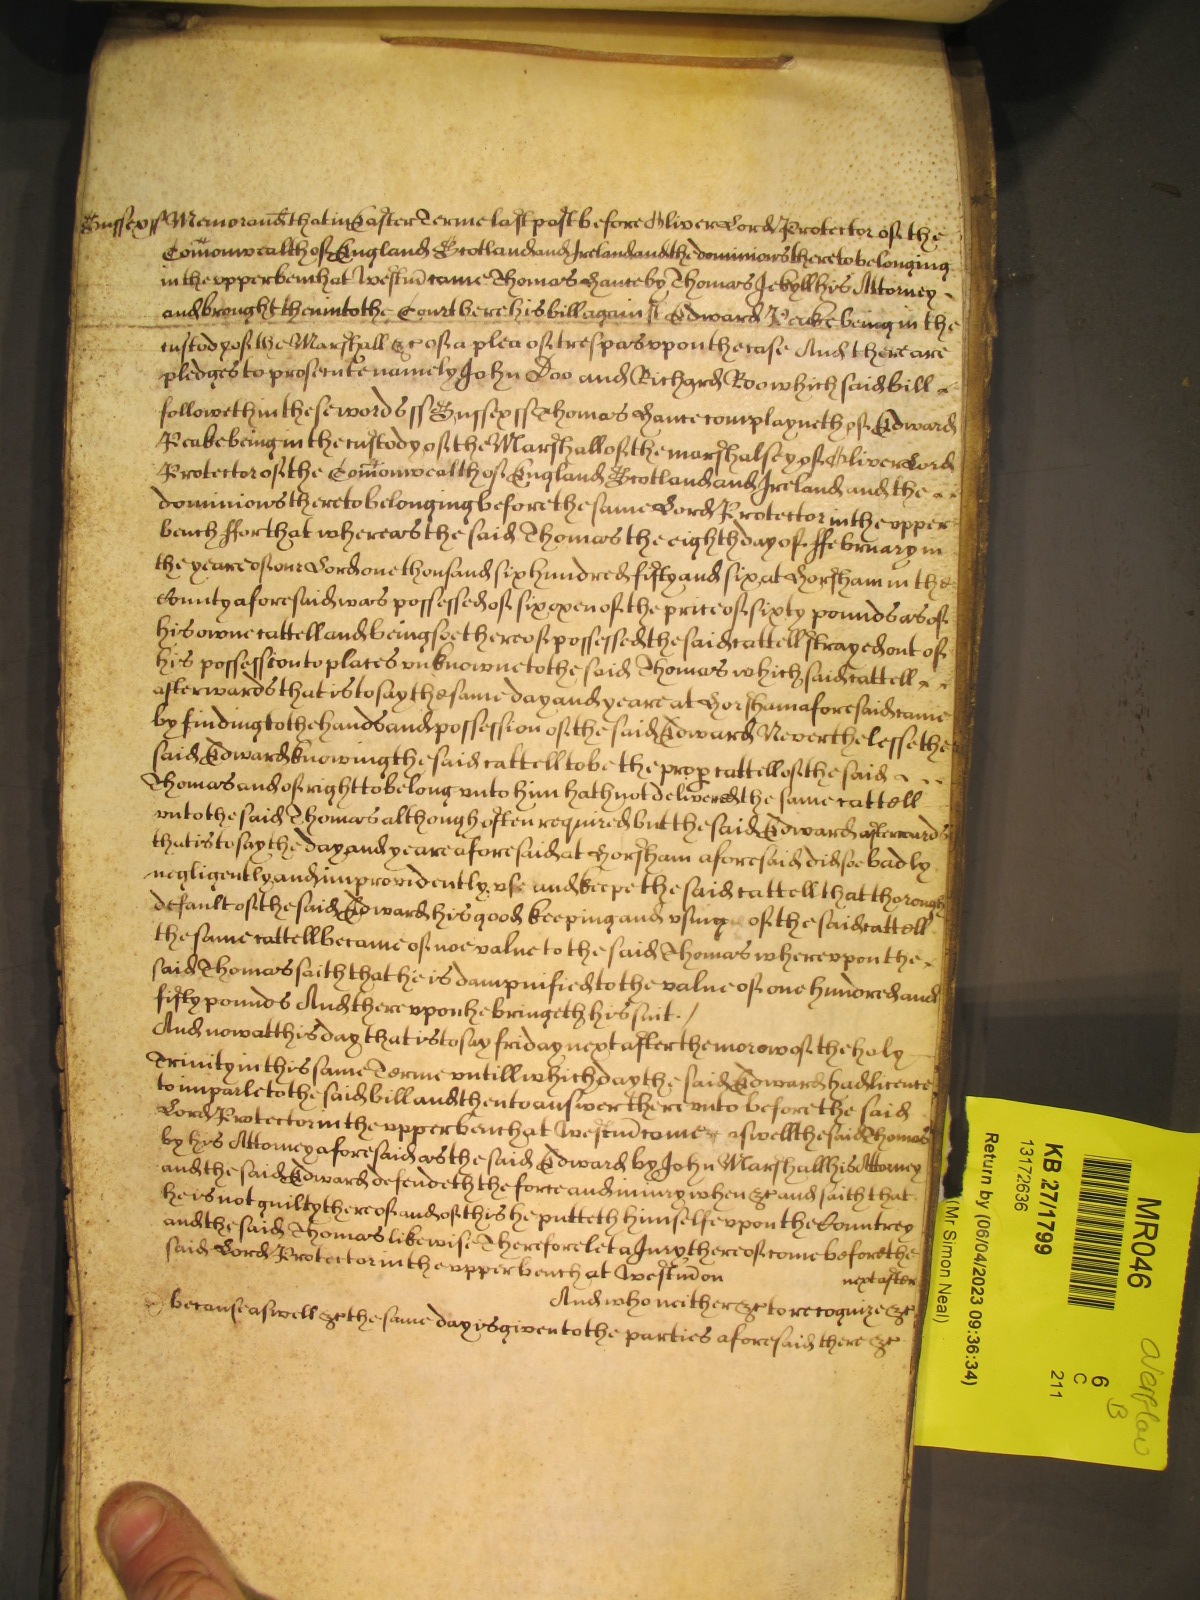 Sussex ss Memorand that in Easter Terme last past before Oliver Lord Protector of the
Comonwealth of England Scotland and Ireland and the dominions thereto belonging
in the upper bench at Westm came Thomas by Thomas Jekyll his Attorney
and brought then into the Court here his bill against Edward Peake being in the
custody of the Marshall &c of a plea of trespas upon the case And there are
pledges to prosecute namely John Doo and Richard Roo which said bill
followeth in these words ss Sussex ss Thomas complayneth of Edward
Peake being in the custody of the Marshall of the marshalsey of Oliver Lord
Protector of the Comonwealth of England Scotland and Ireland and the
dominions thereto belonging before the same Lord Protector in the upper
bench ffor that whereas the said Thomas the eighth day of ffebruary in
the yeare of our Lord one thousand six hundred fifty and six at Horsham in the
County aforesaid was possessed of six oxen of the price of sixty pounds as of
his owne cattell and being soe thereof possessed the said cattell strayed out of
his possession to places unknowne to the said Thomas which said cattell
afterwards that is to say the same day and yeare at Horsham aforesaid came
by finding to the hands and possession of the said Edward Neverthelesse the
said Edward knowing the said cattell to be the prop cattell of the said
Thomas and of right to belong unto him hath not delivered the same cattell
unto the said Thomas although often required but the said Edward afterwards
that is to say the day and yeare aforesaid at Horsham aforesaid did soe badly
negligently and improvidently use and keepe the said cattell that thorough
default of the said Edward his good keeping and using of the said cattell
the same cattell became of noe value to the said Thomas whereupon the
said Thomas saith that he is dampnified to the value of one hundred and
fifty pounds And thereupon he bringeth his suit /
And now at this day that is to say friday next after the morow of the holy
Trinity in this same Terme untill which day the said Edward had licence
to imparle to the said bill and then to answer thereunto before the said
Lord Protector in the upper bench at Westm come aswell the said Thomas
by his Attorney aforesaid as the said Edward by John Marshall his Attorney
and the said Edward defendeth the force and iniury when &c and saith that
he is not guilty thereof and of this he putteth himselfe upon the Countrey
and the said Thomas likewise Therefore let a Jury thereof come before the
said Lord Protector in the upper bench at Westm on next after
And who neither &c to recognize &c
because aswell &c the same day is given to the parties aforesaid there &c
MR046
KB 27/1799
13172636
Return by (06/04/2023 09:36:34)
(Mr Simon Neal)
6
C
211
Overflow
B